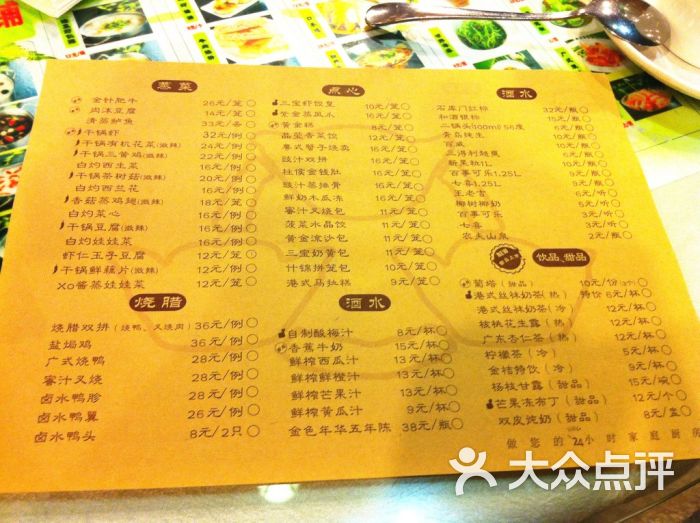 蒸菜
金针肥牛 26元/笼
肉沫豆腐 16元/笼
清蒸鲈鱼 33元/条
干锅虾 32元/例
干锅有机花菜(微辣) 24元/例
干锅三黄鸡(微辣) 22元/例
白灼西生菜 16元/例
干锅茶树菇(微辣) 20元/例
白灼西兰花 16元/例
香菇蒸鸡煲(微辣) 18元/笼
白灼菜心 16元/例
干锅豆腐(微辣) 16元/例
白灼娃娃菜 16元/例
虾仁玉子豆腐 12元/笼
干锅鲜藕片(微辣) 12元/例
Xo酱蒸娃娃菜 12元/笼
烧腊
烧腊双拼(烧鸭、叉烧肉) 36元/例
盐焗鸡 36元/例
广式烧鸭 28元/例
蜜汁叉烧 28元/例
卤水鸭胗 28元/例
卤水鸭翼 26元/例
卤水鸭头 8元/2只
点心
三宝虾饺皇 10元/笼
紫金蒸凤爪 10元/笼
黄金糕 8元/笼
晶莹香菜饺 12元/笼
粤式蟹子烧卖 10元/笼
豉汁双拼 16元/笼
柱侯金钱肚 16元/笼
豉汁蒸排骨 16元/笼
鲜奶木瓜冻
蜜汁叉烧包
菠菜水晶饺
黄金流沙包
三宝奶黄包
什锦拼笼包
港式马拉糕
酒水
自制酸梅汁 8元/杯
香蕉牛奶 15元/杯
鲜榨西瓜汁 13元/杯
鲜榨鲜橙汁
鲜榨芒果汁
鲜榨黄瓜汁 9元/杯
金色年华五年陈 38元/瓶
酒水
石库门红标 32元/瓶
和酒银标 15元/瓶
二锅头100ml 56度
青岛纯生
百威
三得利超爽
新果粒1L
百事可乐1.25L 9元/瓶
七喜1.25L 9元/瓶
王老吉
椰树椰奶 5元/听
百事可乐 3元/听
七喜
农夫山泉 2元/瓶
饮品、甜品
蘭塔(甜品) 10元/份(3个)
港式丝袜奶茶(热) 特价6元/杯
港式丝袜奶茶(冷)
核桃花生露(热)
广东杏仁茶(热) 12元/杯
柠檬茶(冷) 5元/杯
金桔特饮(冷) 9元/杯
杨枝甘露(甜品) 15元/碗
芒果冻布丁(甜品) 12元/个
双皮炖奶(甜品) 8元/盅
做您的24小时家庭厨房
大众点评